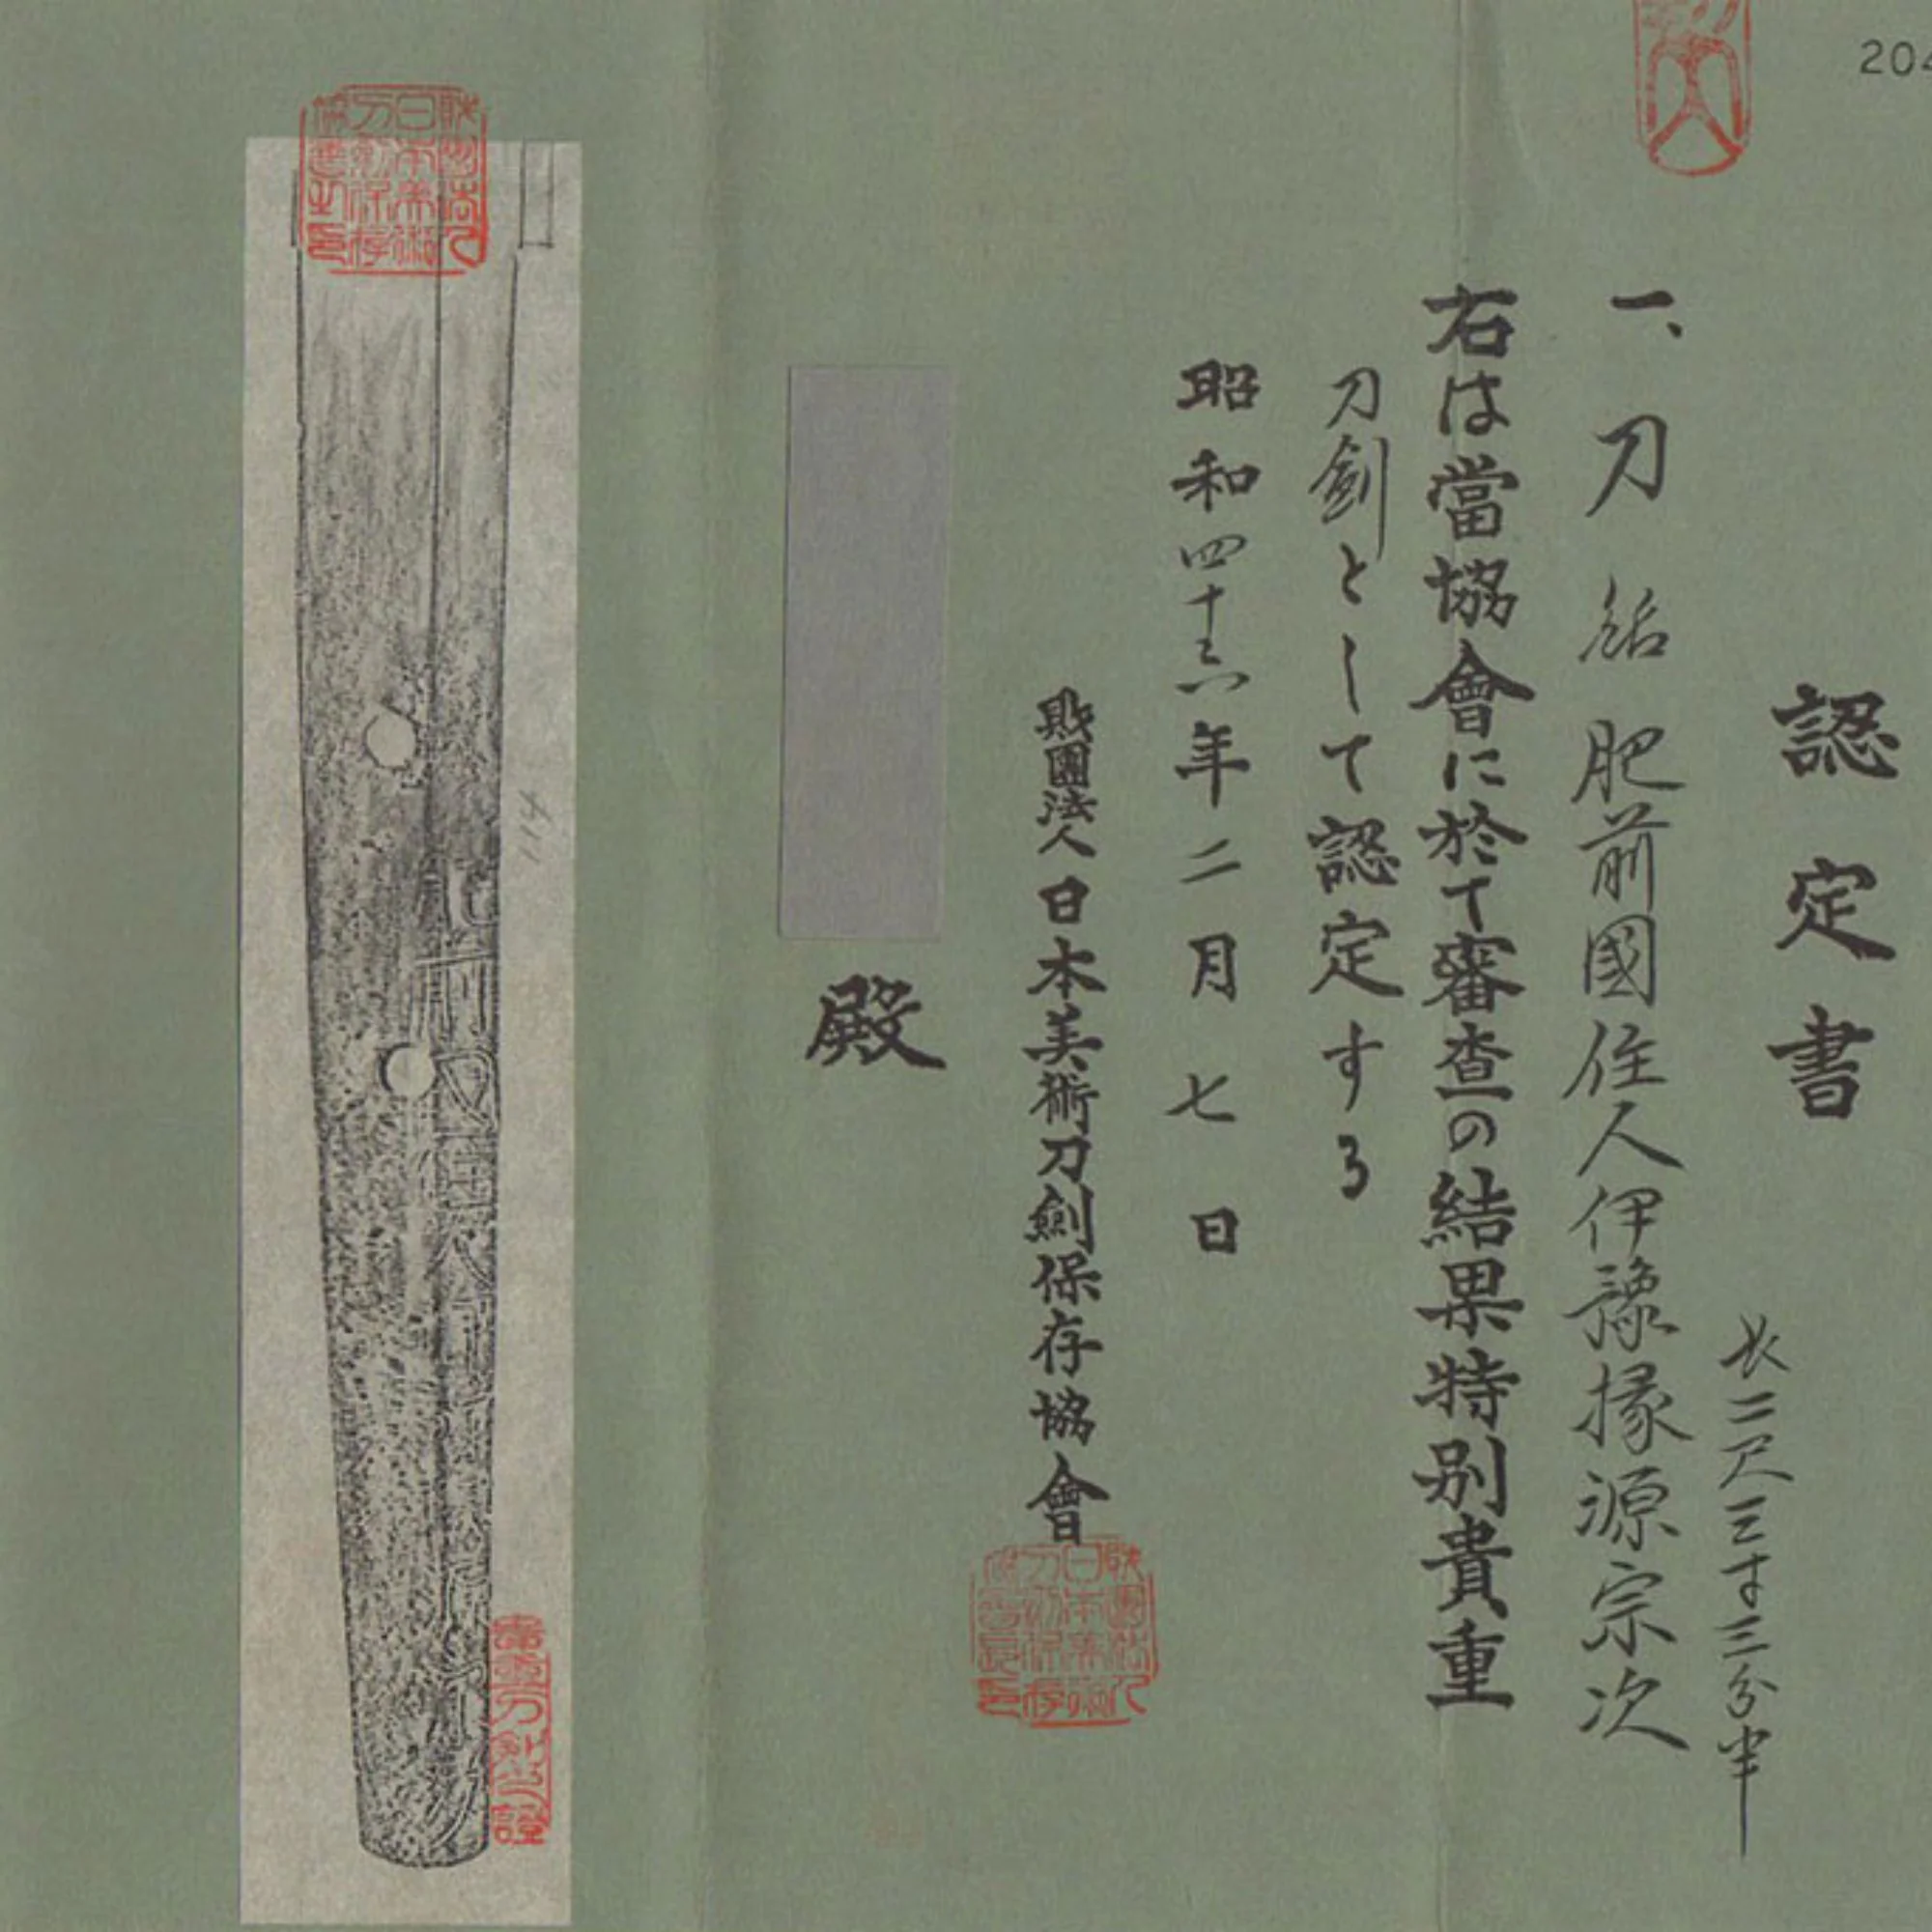 204
認定書
長二尺三寸三分半
一、刀 銘 肥前國住人伊豫掾源宗次
右は當協會に於て審査の結果特別貴重
刀劍として認定する
昭和四十六年二月七日
財團法人日本美術刀劍保存協會
殿
114